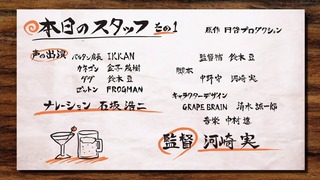 本日のスタッフ その1
声の出演
バルタン星人 IKKAN
カネゴン 金子茂樹
ダダ 鈴木豆
ゴットン FROGMAN
ナレーション 石坂浩二
原作 円谷プロダクション
監督補 鈴木豆
脚本
中野守 河崎実
キャラクターデザイン
GRAPE BRAIN 清水誠一郎
音楽 中村遼
監督 河崎実